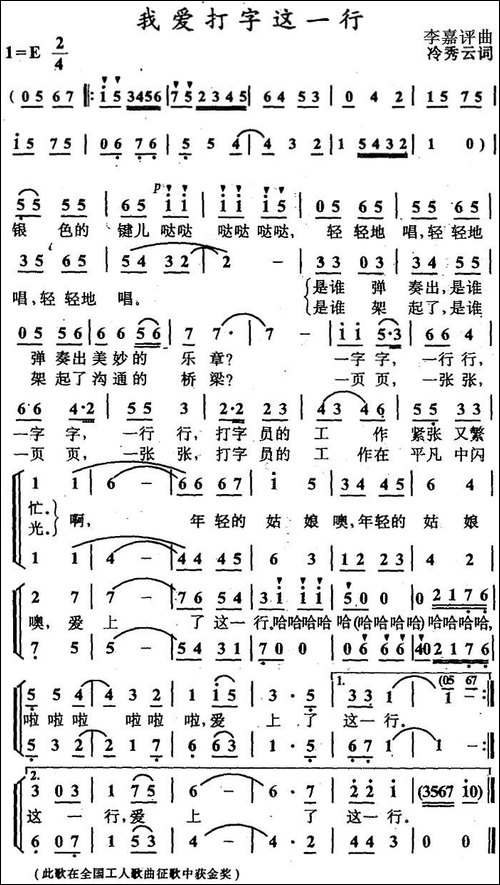 我爱打字这一行
1=E 2/4
李嘉评曲
冷秀云词
(05 67 |: i5 3456 | 75 2345 | 64 53 | 04 2 | 15 75 |
i5 75 | 06 76 | 55 4 | 4 3 2 | 1 5432 | 1 0) |
p
55 55 | 65 ii | ii i5 | 05 65 | 55 65 |
银 色的 键儿 哒哒 哒哒 哒哒, 轻 轻地 唱,轻 轻地
35 65 | 54 32 | 2 - | 33 03 | 34 55 |
唱,轻 轻地 唱。 是谁 弹 奏出,是谁
是谁 架 起了,是谁
05 56 | 66 56 | 7 7· | 7 - | ii 5·3 | 66 4 |
弹 奏出 美妙的 乐 章? 一字 字, 一行 行,
架 起了 沟通的 桥 梁? 一页 页, 一张 张,
66 4·2 | 55 3 | 2·2 23 | 43 46 | 55 55 |
一字 字, 一行 行,打字 员的 工 作 紧张 又繁
一页 页, 一张 张,打字 员的 工 作在 平凡 中闪
1 1 | 6 - | 66 67 | i 5 | 34 45 | 6 4 |
忙。
光。 啊, 年轻的 姑 娘噢,年轻的 姑 娘
1 1 | 4 - | 44 45 | 6 3 | 12 23 | 4 2 |
2 7 | 7 - | 76 54 | 3i ii | 50 0 | 0 2176 |
噢,爱 上 了 这一 行,哈哈哈哈 哈(哈哈哈哈)哈哈哈哈,
7 5 | 5 - | 54 31 | 70 0 | 06 66 | 40 2176 |
5 5 4 | 4 3 2 | 1 i5 | 3· 5 | 1. 33 1 | (05 67) 1 - :|
啦 啦 啦 啦 啦 啦,爱 上 了 这一 行。
5 3 2 | 2 1 7 | 6 63 | 1· 5 | 67 1 | 1 - :|
2. 3 03 | 1 75 | 6 - | 6· 7 | 22 i | (3567 i0) :|
这 一 行,爱 上 了 这一 行。
6 07 | 1 53 | 4 - | 4· 2 | 00 0 | 0 0 :|
(此歌在全国工人歌曲征歌中获金奖)